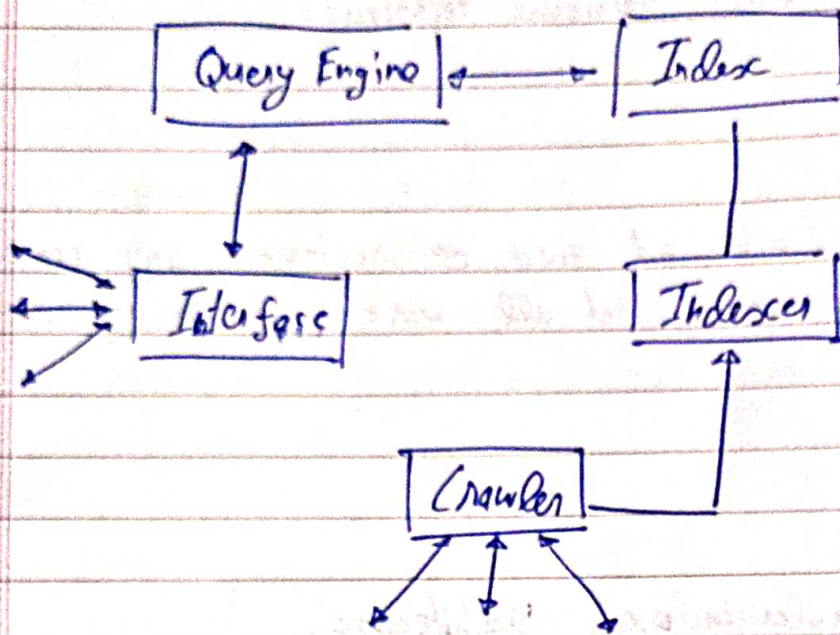 Query Engine
Index
Interface
Indexer
Crawler